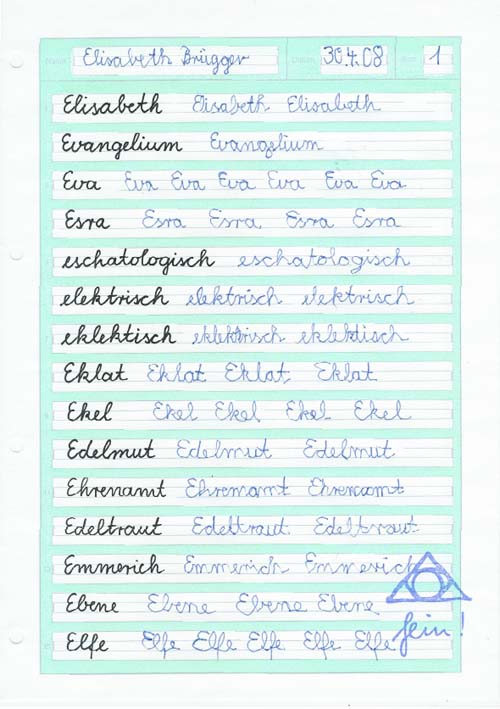 Name Elisabeth Brügger Datum 30.4.08 1
Elisabeth Elisabeth Elisabeth
Evangelium Evangelium
Eva Eva Eva Eva Eva Eva Eva
Esra Esra Esra Esra Esra
eschatologisch eschatologisch
elektrisch elektrisch elektrisch
eklektisch eklektrisch eklektisch
Eklat Eklat Eklat Eklat
Ekel Ekel Ekel Ekel Ekel
Edelmut Edelmut Edelmut
Ehrenamt Ehrenamt Ehrenamt
Edeltraut Edeltraut Edeltraut
Emmerich Emmerich Emmerich
Ebene Ebene Ebene Ebene
Elfe Elfe Elfe Elfe Elfe Elfe
fein!